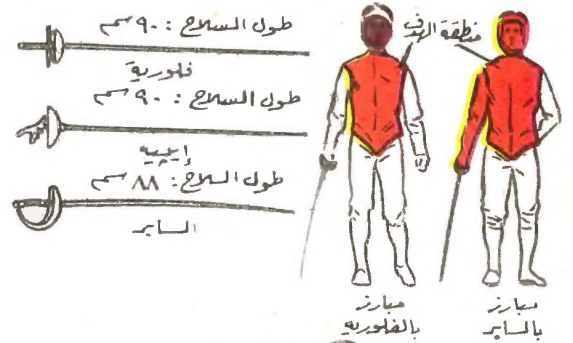 طول السلاح : ٩٠ سم
فلورية
طول السلاح : ٩٠ سم
إيبيه
طول السلاح : ٨٨ سم
السابر
منطقة الهدف
مبارز
بالفلوريه
مبارز
بالسابر